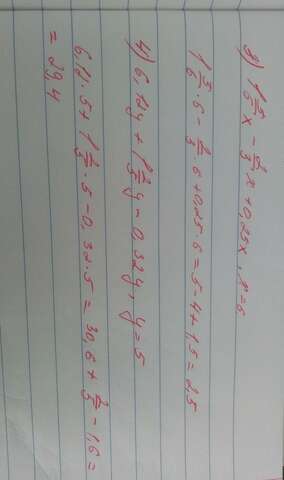 3) 1 5/6 x - 2/3 x + 0,25x, x = 6
1 5/6 · 6 - 2/3 · 6 + 0,25 · 6 = 5 - 4 + 1,5 = 2,5
4) 6,12y + 1 2/5 y - 0,32y, y = 5
6,12 · 5 + 1 2/5 · 5 - 0,32 · 5 = 30,6 + 2/5 - 1,6 =
= 29,4